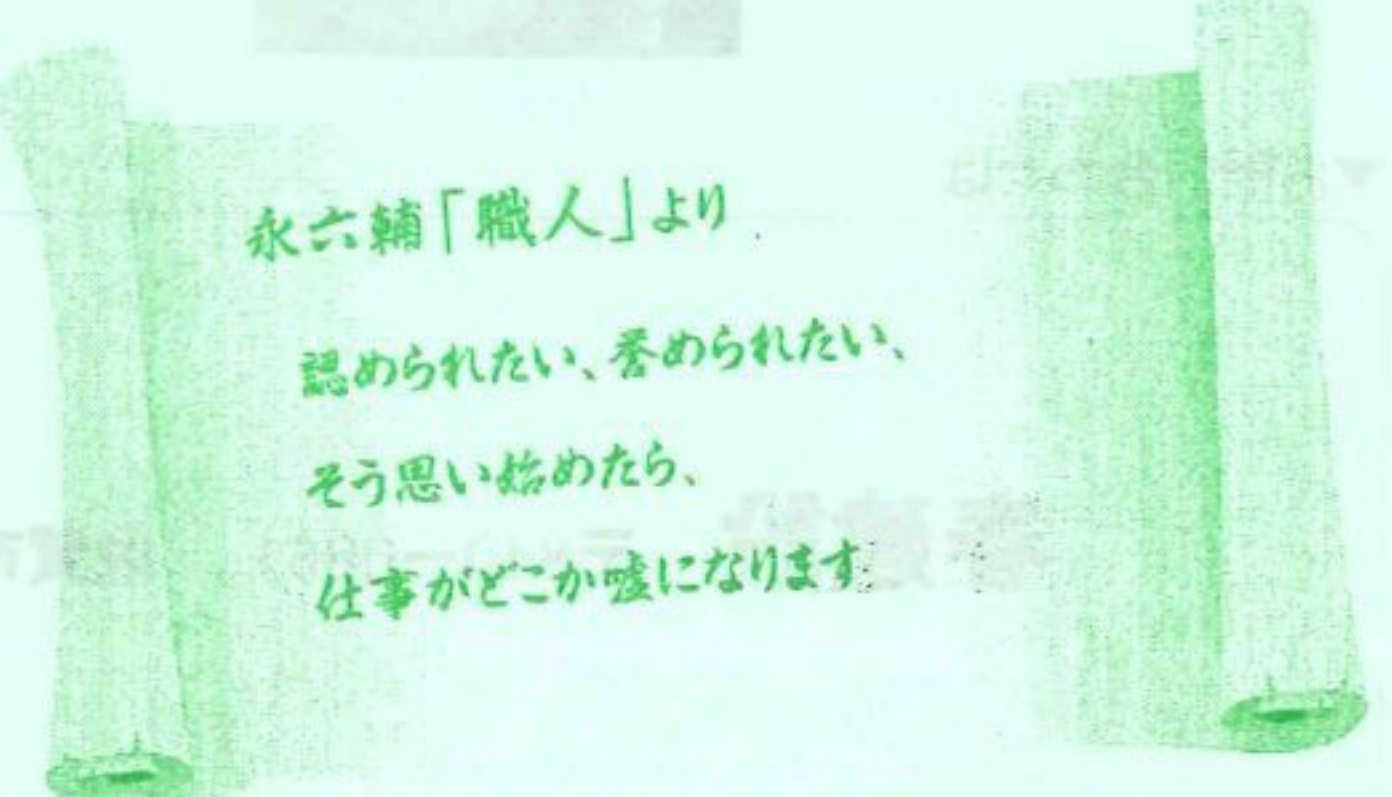 永六輔「職人」より
認められたい、誉められたい、
そう思い始めたら、
仕事がどこか嘘になります